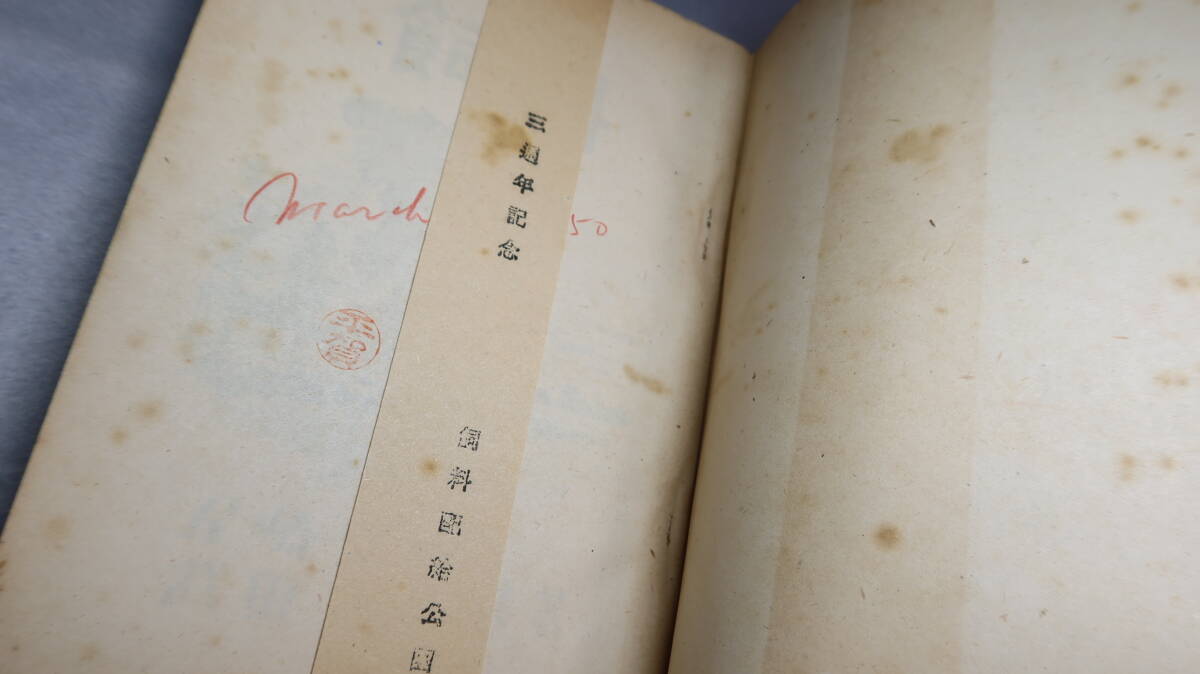 三週年記念
飼料配給公團
March
50
平賀